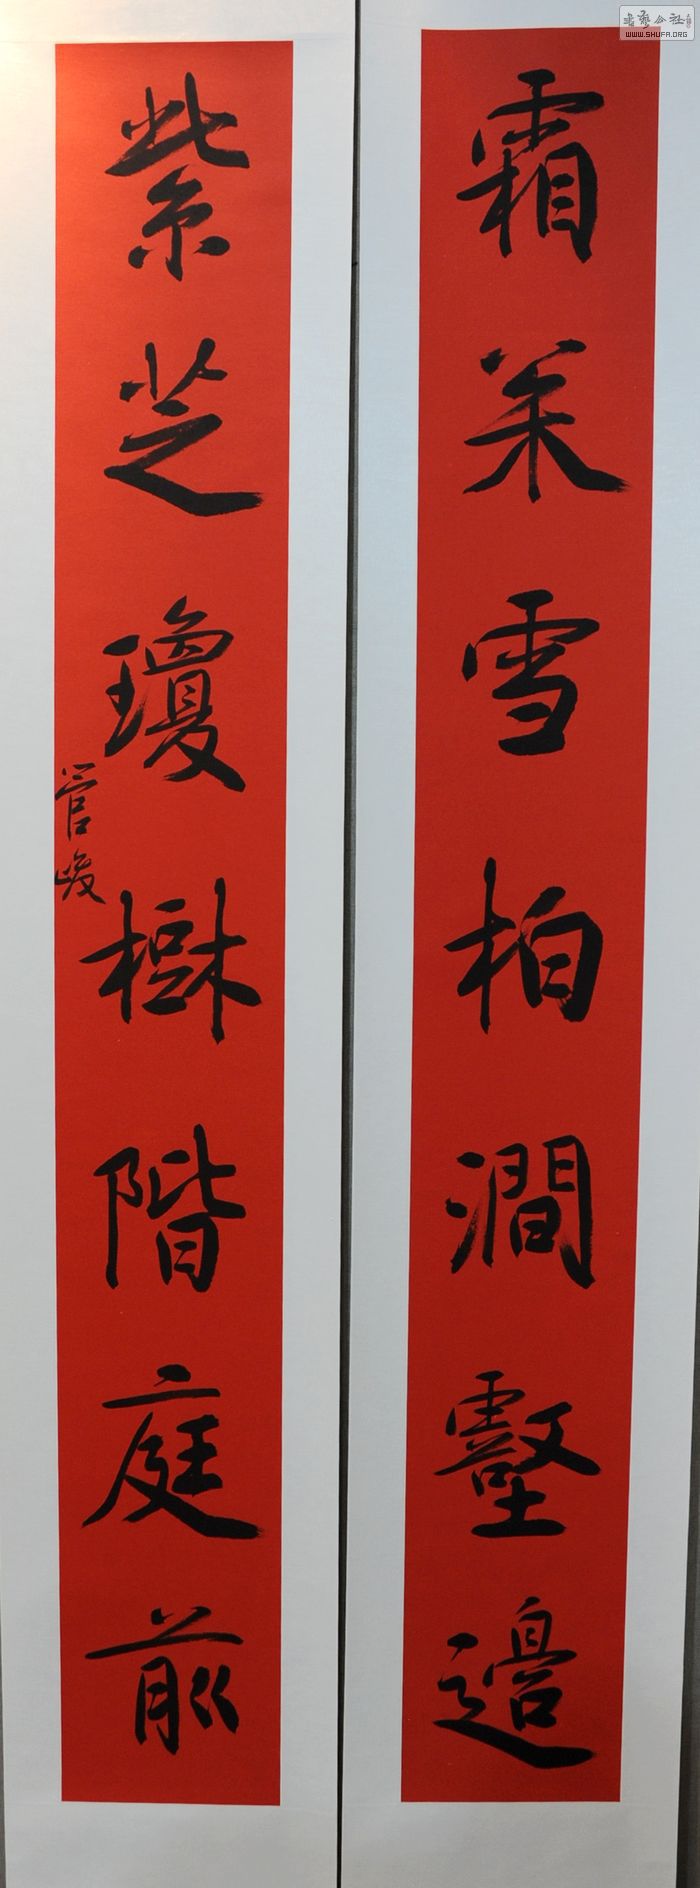 霜松雪柏澗壑邊
紫芝瓊樹階庭前
管峻
書藝公社
WWW.SHUFA.ORG